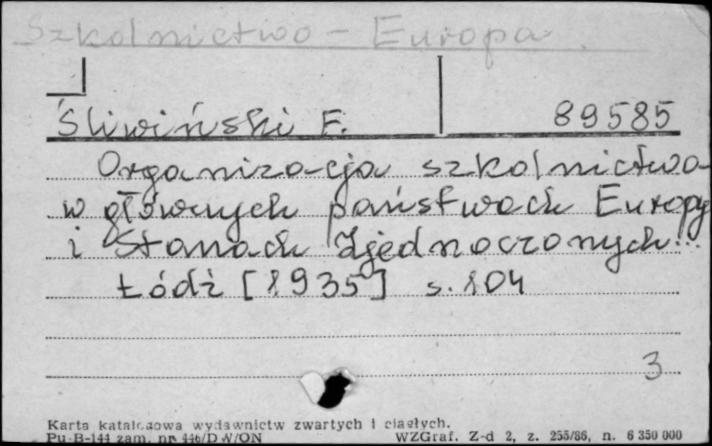 Szkolnictwo - Europa
Śliwiński F. 89585
Organizacja szkolnictwa
w głównych państwach Europy
i Stanach Zjednoczonych...
Łódź [1935] s. 104
3
Karta katalogowa wydawnictw zwartych i ciągłych.
Pu-B-144 zam. nr 446/DW/ON WZGraf. Z-d 2, z. 255/86, n. 6 350 000